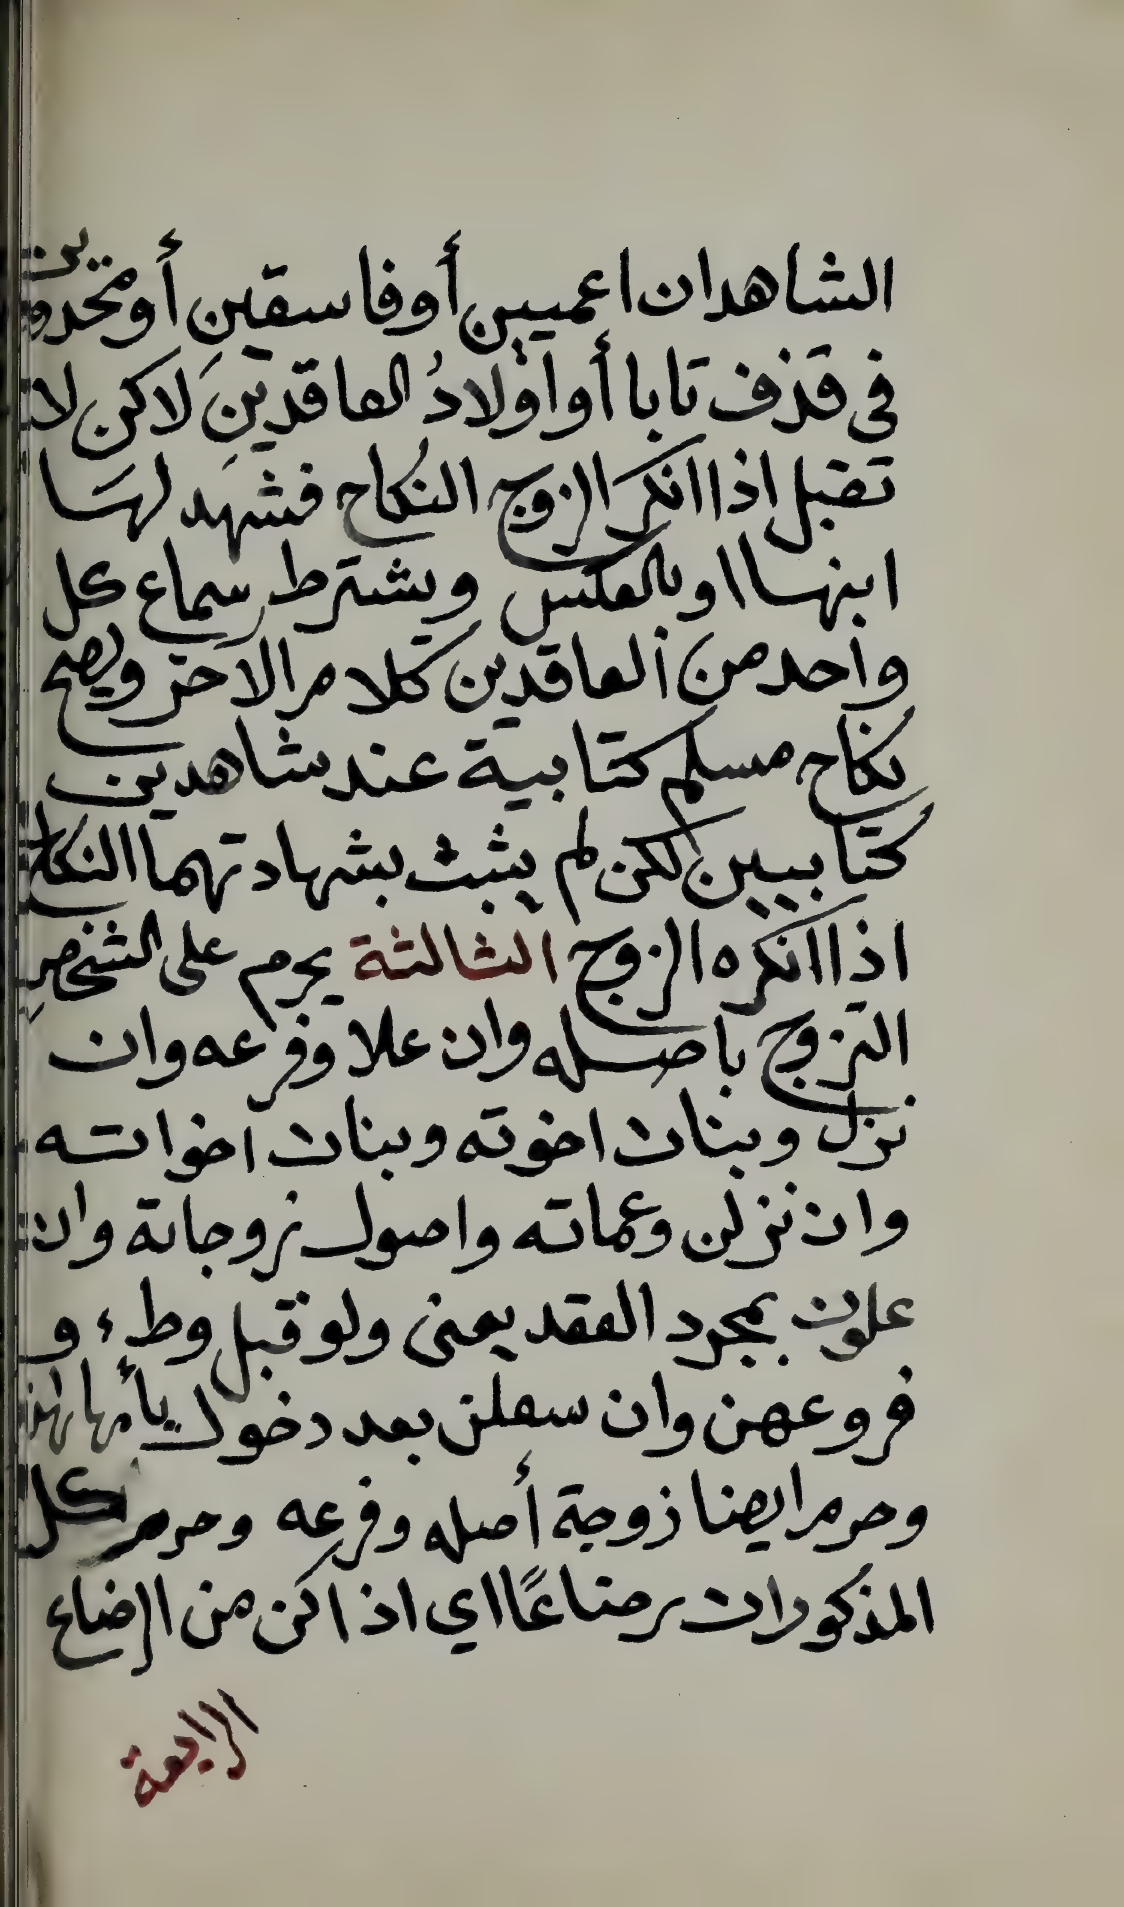 الشاهدان اعميين أوفاسقين أومحدودين
في قذف تابا أواولادُ العاقدين لاكن لا
تقبل اذا انكر الزوج النكاح فشهد لها
ابنها اوبالعكس ويشترط سماع كل
واحد من العاقدين كلام الآخر ويصح
نكاح مسلم كتابية عند شاهدين
كتابيين لكن لم يثبت بشهادتهما النكاح
اذا انكره الزوج الثالثة يحرم على الشخص
التزوج باصله وان علا وفرعه وان
نزل وبنات اخوته وبنات اخواته
وان نزلن وعماته واصول زوجاته وان
علون بمجرد العقد يعنى ولو قبل وطء و
فروعهن وان سفلن بعد دخول بأمهاتهن
وحرم ايضا زوجة أصله وفرعه وحرم كل
المذكورات رضاعًا اي اذا كن من الرضاع
الرابعة